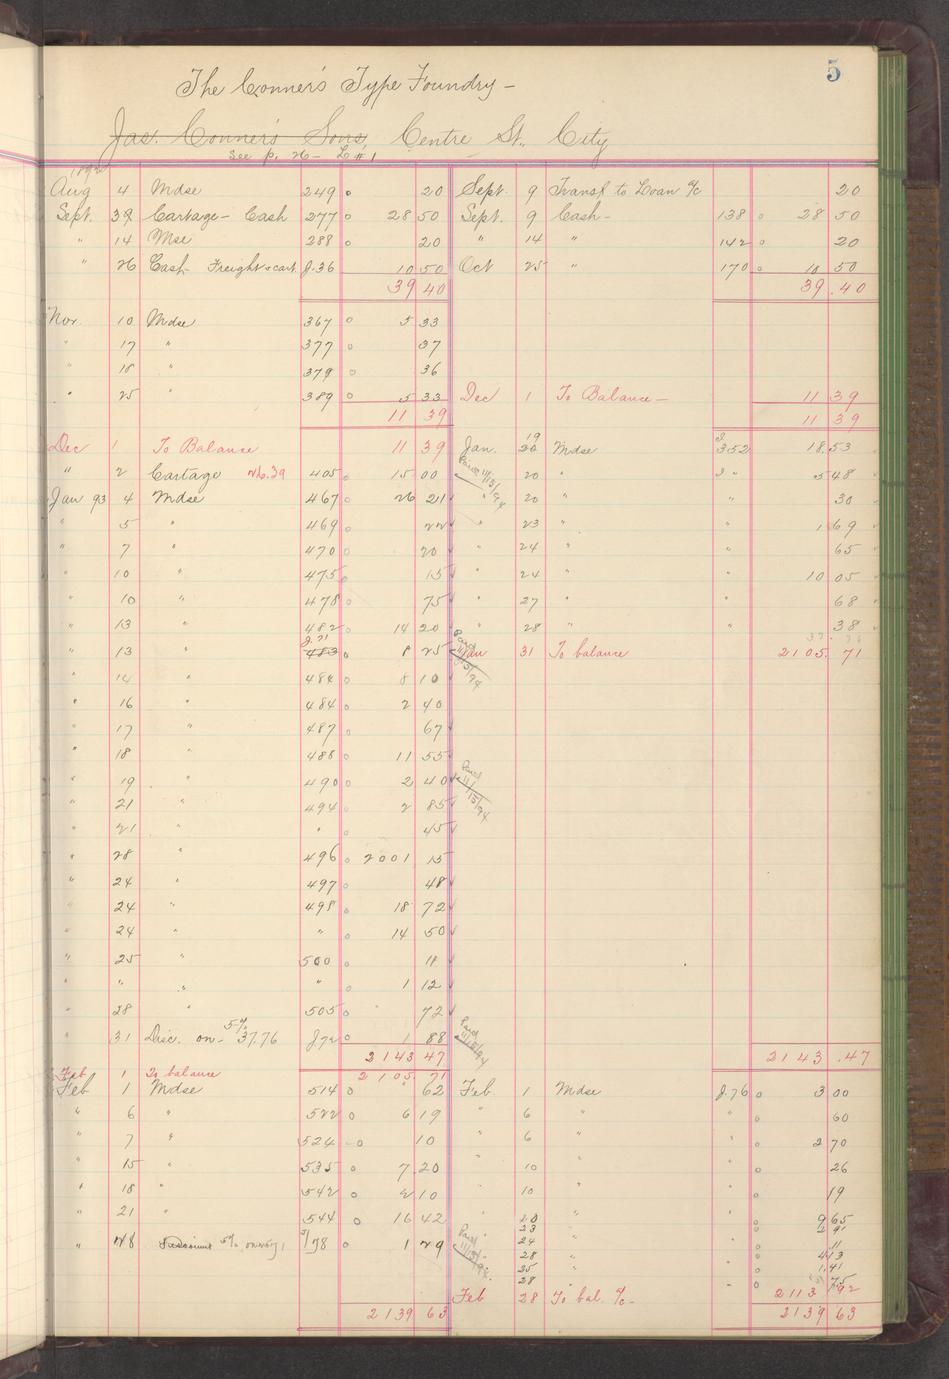 5
The Conner's Type Foundry —
Jas. Conner's Sons, Centre St., City
See p. 26 — L # 1
1892
Aug 4 Mdse 249 20 Sept. 9 Transf. to Loan a/c 20
Sept. Cartage — Cash 277 28 50 Sept. 9 Cash — 138 28 50
" 14 Mse 288 20 " 14 " 142 20
" 26 Cash — Freight & cart. J. 36 10 50 Oct 25 " 170 10 50
39 40 39 . 40
Nov. 10 Mdse 367 5 33
" 17 " 377 37
" 18 " 379 36
" 25 " 389 5 33 Dec 1 To Balance — 11 39
11 39 11 39
Dec 1 To Balance 11 39 Jan. 19 20 Mdse J 352 18.53
" 2 Cartage 405 15 00 20 " 5 48
Jan 93 4 Mdse 467 26 21 " 20 " " 30
" 5 " 469 22 " 23 " " 1 69
" 7 " 470 20 " 24 " " 65
" 10 " 475 15 " 24 " " 10 05
" 10 " 478 75 " 27 " " 68
" 13 " 482 14 20 " 28 " " 38
" 13 " J. 71 483 8 25 Jan 31 To balance 2105. 71
" 14 " 484 8 10
" 16 " 484 2 40
" 17 " 487 67
" 18 " 488 11 55
" 19 " 490 2 40
" 21 " 494 2 85
" 21 " " 45
" 28 " 496 2001 15
" 24 " 497 48
" 24 " 498 18 72
" 24 " " 14 50
" 25 " 500 11
" " " " 1 12
" 28 " 505 72
" 31 Disc. on — 5% 37.76 J72 1 88
2143 47 2143 .47
Feb 1 To balance 2105 71
Feb 1 Mdse 514 62 Feb. 1 Mdse J. 76 3 00
" 6 " 522 6 19 " 6 " " 60
" 7 " 524 10 " 6 " " 2 70
" 15 " 535 7 20 " 10 " " 26
" 18 " 542 2 10 10 " 19
" 21 " 544 16 42 20 " 9 65
23 2 91
" 28 5% 1 29 24 " 11
28 " 4 13
25 1.41
28 " 75
Feb 28 To bal. a/c — 2113 92
2139 63 2139 63
Paid 11/15/94
Paid 11/15/94
Paid 11/15/94
Paid 11/15/94
Paid 11/15/94